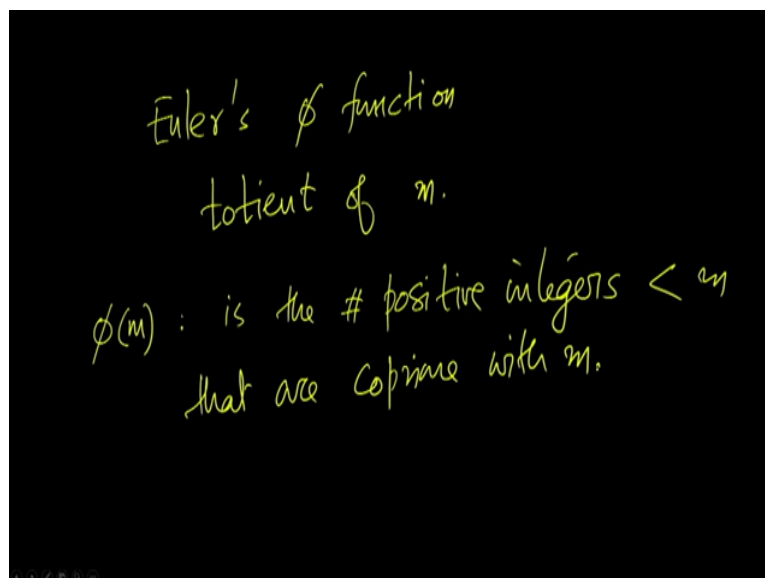 Euler's ϕ function
totient of m.
ϕ(m) : is the # positive integers < m
that are coprime with m.